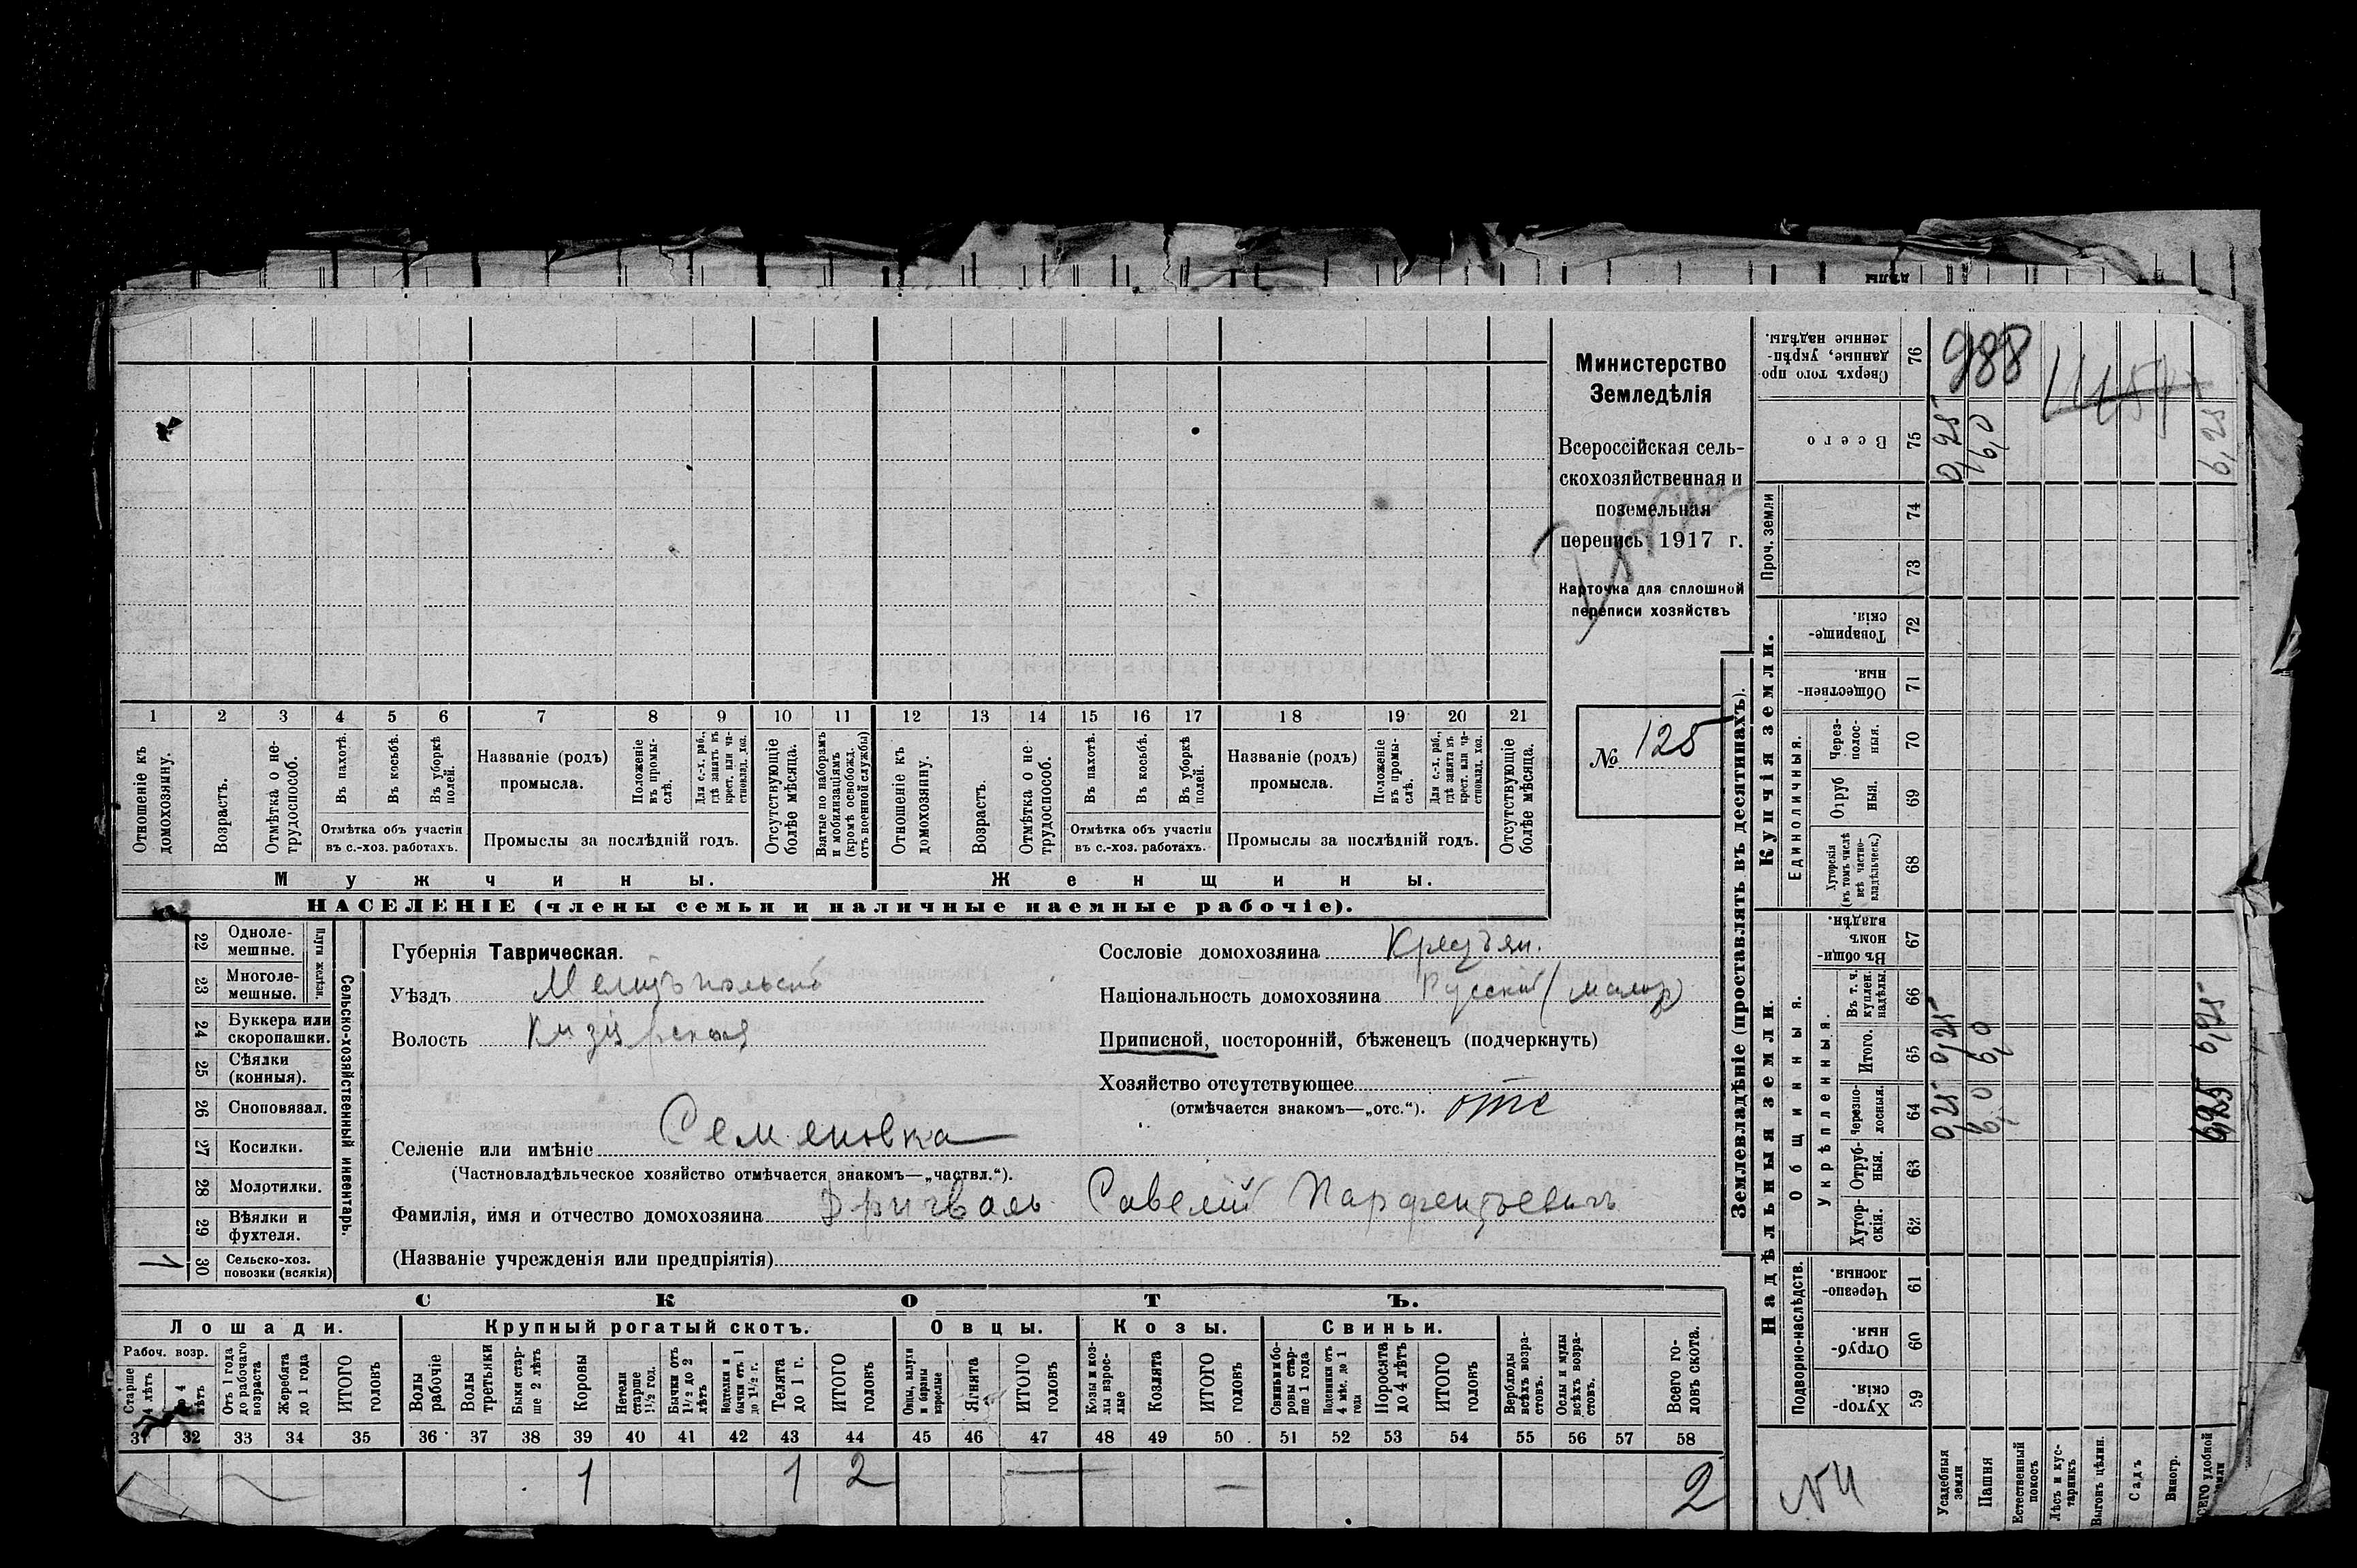 Министерство
Земледѣлія
Всероссійская сель-
скохозяйственная и
поземельная
перепись 1917 г.
Карточка для сплошной
переписи хозяйствъ
№ 125
1 2 3 4 5 6 7 8 9 10 11 12 13 14 15 16 17 18 19 20 21
Отношеніе къ домохозяину.
Возрастъ.
Отмѣтка о не-трудоспособ.
Въ пахотѣ.
Въ косьбѣ.
Въ уборкѣ полей.
Отмѣтка объ участіи
въ с.-хоз. работахъ.
Названіе (родъ)
промысла.
Положеніе въ промы-слѣ.
Для с.-х. раб., гдѣ занятъ въ крест. или ча-стновлад. хоз.
Промыслы за послѣдній годъ.
Отсутствующіе болѣе мѣсяца.
Взятые по наборамъ и мобилизаціямъ (кромѣ освобожд. отъ военной службы)
Отношеніе къ домохозяину.
Возрастъ.
Отмѣтка о не-трудоспособ.
Въ пахотѣ.
Въ косьбѣ.
Въ уборкѣ полей.
Отмѣтка объ участіи
въ с.-хоз. работахъ.
Названіе (родъ)
промысла.
Положеніе въ промы-слѣ.
Для с.-х. раб., гдѣ занята въ крест. или ча-стновлад. хоз.
Промыслы за послѣдній годъ.
Отсутствующіе болѣе мѣсяца.
Мужчины. Женщины.
НАСЕЛЕНІЕ (члены семьи и наличные наемные рабочіе).
22 Одноле-мешные.
23 Многоле-мешные.
Плуги желѣзн.
24 Буккера или скоропашки.
25 Сѣялки (конныя).
26 Сноповязал.
27 Косилки.
28 Молотилки.
29 Вѣялки и фухтеля.
1 30 Сельско-хоз. повозки (всякія)
Сельско-хозяйственный инвентарь.
Губернія Таврическая.
Уѣздъ Мелитопольскій
Волость
Селеніе или имѣніе Семеновка
(Частновладѣльческое хозяйство отмѣчается знакомъ—„частвл.“).
Фамилія, имя и отчество домохозяина Савелій Парфентьевичъ
(Названіе учрежденія или предпріятія)
Сословіе домохозяина Крестьян.
Національность домохозяина Русский (малор)
Приписной, посторонній, бѣженецъ (подчеркнуть)
Хозяйство отсутствующее
(отмѣчается знакомъ—„отс.“). отс
СКОТЪ.
Лошади. Крупный рогатый скотъ. Овцы. Козы. Свиньи.
Рабоч. возр.
Старше 4 лѣтъ
До 4 лѣтъ
Отъ 1 года до рабочаго возраста
Жеребята до 1 года
ИТОГО головъ
Волы рабочіе
Волы третьяки
Быки стар-ше 2 лѣтъ
Коровы
Нетели старше 1½ год.
Бычки отъ 1½ до 2 лѣтъ
Нетелки и бычки отъ 1 до 1½ г.
Телята до 1 г.
ИТОГО головъ
Овцы, валухи и бараны взрослые
Ягнята
ИТОГО головъ
Козы и коз-лы взрос-лые
Козлята
ИТОГО головъ
Свиньи и бо-ровы стар-ше 1 года
Подвинки отъ 4 мѣс. до 1 года
Поросята до 4 лѣтъ
ИТОГО головъ
Верблюды всѣхъ возра-стовъ.
Ослы и мулы всѣхъ возра-стовъ.
Всего го-ловъ скота.
31 32 33 34 35 36 37 38 39 40 41 42 43 44 45 46 47 48 49 50 51 52 53 54 55 56 57 58
1 1 2 2
Землевладѣніе (проставлять въ десятинахъ).
Купчія земли.
Надѣльныя земли.
Сверхъ того про-данные, укрѣп-ленные надѣлы. 76 988
Всего 75 0,25 6,0 6,25
Проч. земли 74 73
Товарище-скія. 72
Обществен-ныя. 71
Единоличныя.
Через-полос-ныя. 70
Отруб-ныя. 69
Хуторскія (въ томъ числѣ всѣ частно-владѣльческ.) 68
Общинныя.
Въ общин-номъ владѣн. 67
Укрѣпленныя.
Въ т. ч. куплен. надѣлы. 66
Итого. 65 0,25 6,0 6,25
Черезпо-лосныя. 64 0,25 6,0 6,25
Отруб-ныя. 63
Хутор-скія. 62
Подворно-наслѣдств.
Черезпо-лосныя. 61
Отруб-ныя. 60
Хутор-скія. 59
Усадебныя земли
Пашня
Естественный покосъ
Лѣсъ и кус-тарникъ
Выгонъ цѣлин.
Садъ
Виногр.